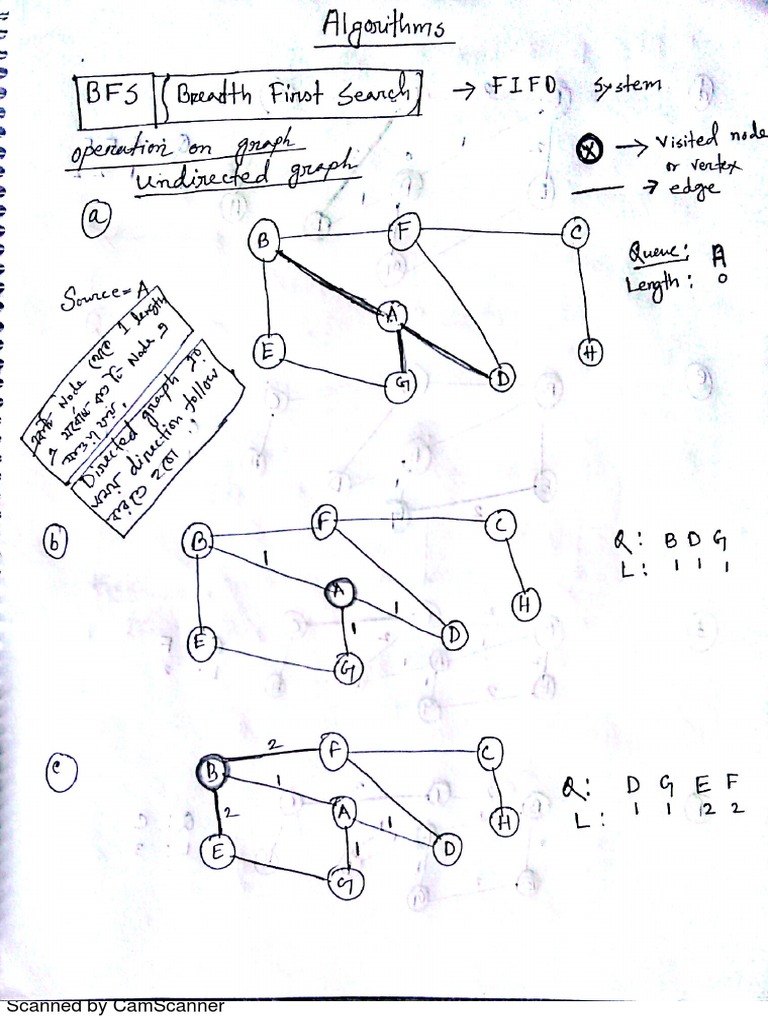 Algorithms
BFS (Breadth First Search) → FIFO System
operation on graph
undirected graph
ⓧ → Visited node
or vertex
— → edge
a
B F C
Queue: A
Length: 0
Source = A
A
E G D H
Node থেকে 1 length
Node এ
Directed graph এ
direction follow
করতে হবে
b
B F C
Q: B D G
L: 1 1 1
1
A 1 H
1
E G D
c
B 2 F C
Q: D G E F
L: 1 1 2 2
1
2 A 1 H
1
E G D
Scanned by CamScanner